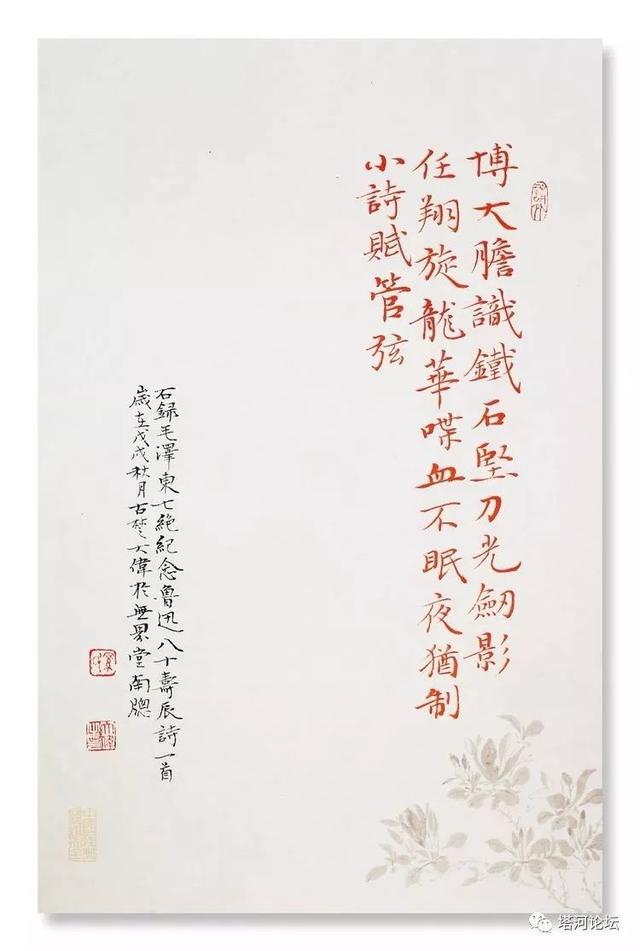 博大膽識鐵石堅刀光劒影
任翔旋龍華喋血不眠夜猶制
小詩賦管弦
石録毛澤東七絶紀念魯迅八十壽辰詩一首
歲在戊戌秋月古楚大偉於無界堂南牕
塔河论坛